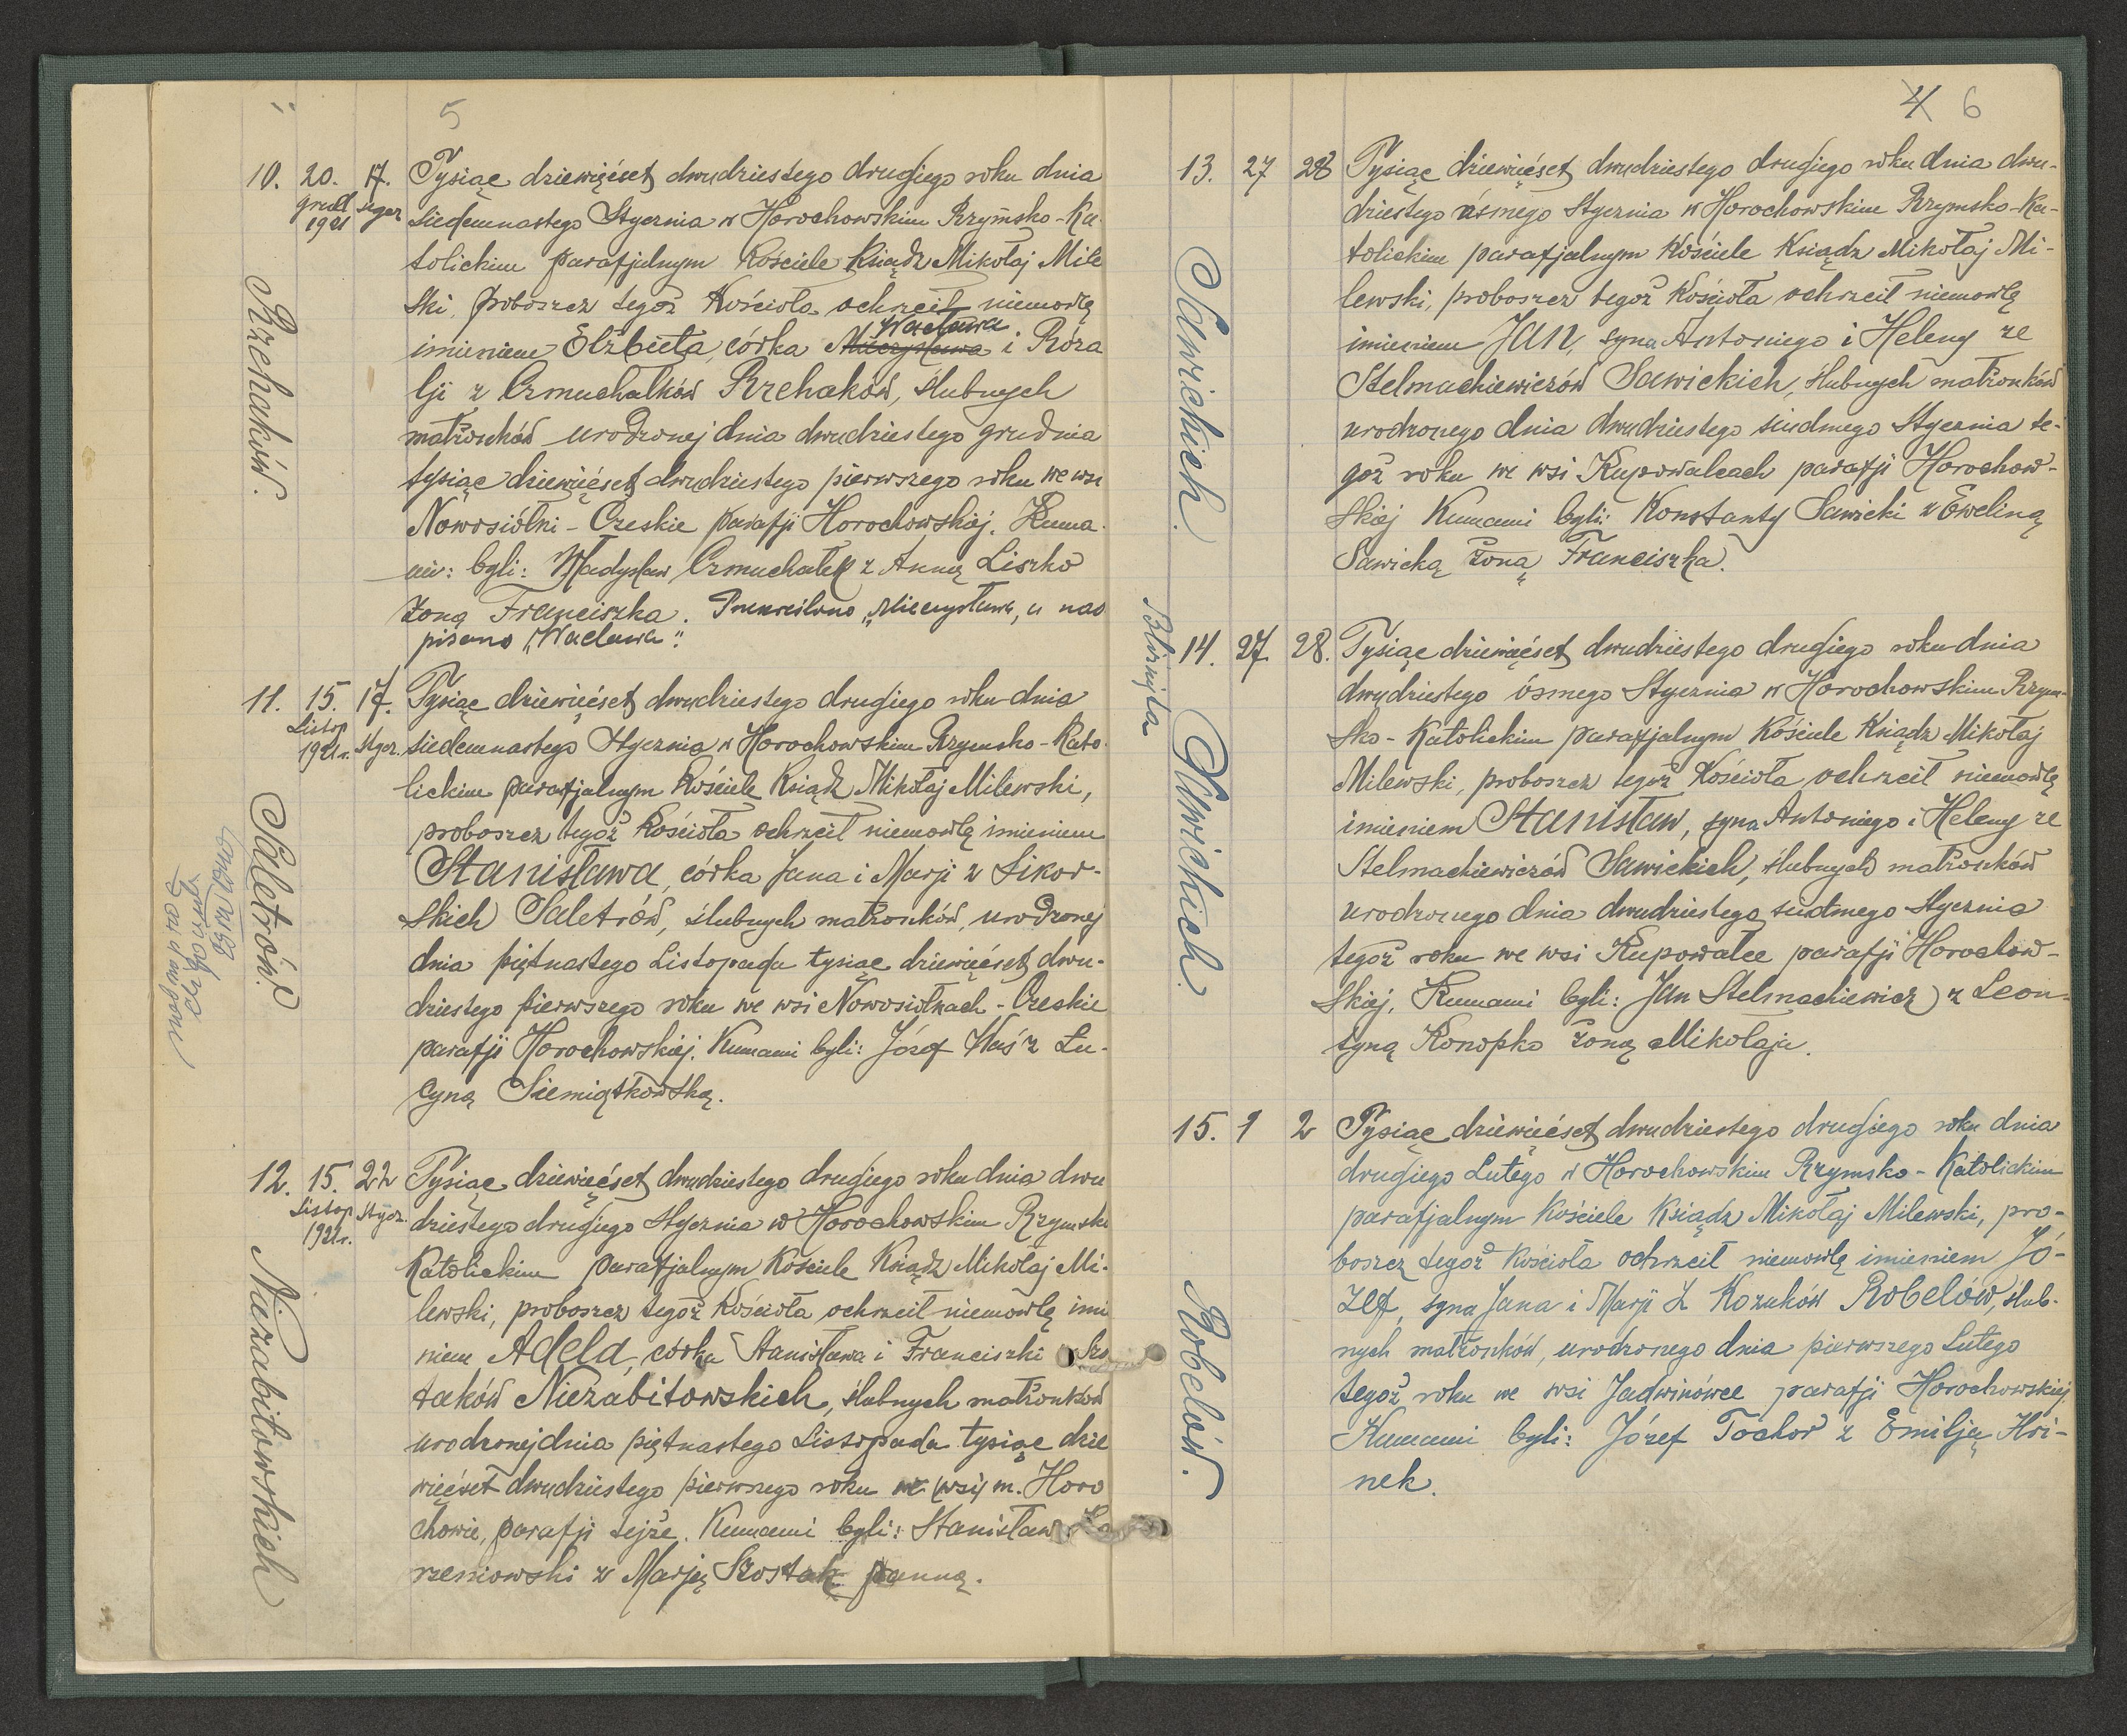 5
10. 20. 17. Tysiąc dziewięćset dwudziestego drugiego roku dnia
grud. stycz siedemnastego Stycznia w Horochowskim Rzymsko-Ka
1921 tolickim parafjalnym Kościele Ksiądz Mikołaj Mile
ski, proboszcz tegoż Kościoła ochrzcił niemowlę
Wacława
imieniem Elżbieta, córka Mieczysława i Róza
lji z Czmuchałków Rzehaków, ślubnych
małżonków urodzonej dnia dwudziestego grudnia
tysiąc dziewięćset dwudziestego pierwszego roku we wsi
Nowosiółki-Czeskie parafji Horochowskiej. Kuma
mi: byli: Władysław Czmuchałek z Anną Liszko
żoną Franciszka. Przekreślono „Mieczysława, u nad
pisano „Wacława".
Rzehaków.
11. 15. 17. Tysiąc dziewięćset dwudziestego drugiego roku dnia
Listop. Stycz. siedemnastego Stycznia w Horochowskim Rzymsko-Kato
1921 r. lickim parafjalnym Kościele Ksiądz Mikołaj Milewski,
proboszcz tegoż Kościoła ochrzcił niemowlę imieniem
Stanisława, córka Jana i Marji z Sikor-
skich Saletrów, ślubnych małżonków, urodzonej
dnia piętnastego Listopada tysiąc dziewięćset dwu-
dziestego pierwszego roku we wsi Nowosiółkach-Czeskie
parafji Horochowskiej. Kumami byli: Józef Waś z Lu-
cyną Siemiątkowską.
Saletrów.
12. 15. 22 Tysiąc dziewięćset dwudziestego drugiego roku dnia dwu
Listop. Stycz. dziestego drugiego Stycznia w Horochowskim Rzymsko
1921 r. Katolickim parafjalnym Kościele Ksiądz Mikołaj Mi-
lewski, proboszcz tegoż Kościoła ochrzcił niemowlę imi
niem Adela, córka Stanisława i Franciszki Szo
taków Niezabitowskich, ślubnych małżonków
urodzonej dnia piętnastego Listopada tysiąc dzie
więćset dwudziestego pierwszego roku we (wsi) m. Horo
chowie, parafji tejże. Kumami byli: Stanisław
rzeniowski z Marją Szostak panną.
Niezabitowskich
4 6
13. 27 28 Tysiąc dziewięćset dwudziestego drugiego roku dnia dwu-
dziestego ósmego Stycznia w Horochowskim Rzymsko-Ka-
tolickim parafjalnym Kościele Ksiądz Mikołaj Mi-
lewski, proboszcz tegoż Kościoła ochrzcił niemowlę
imieniem Jan, syna Antoniego i Heleny ze
Stelmachiewiczów Sawickich, ślubnych małżonków
urodzonego dnia dwudziestego siudmego Stycznia te-
goż roku we wsi Kupowalcach parafji Horochow-
skiej Kumami byli: Konstanty Sawicki z Eweliną
Sawicką żoną Franciszka.
Sawickich.
Bliźnięta
14. 27. 28. Tysiąc dziewięćset dwudziestego drugiego roku dnia
dwudziestego ósmego Stycznia w Horochowskim Rzym-
sko-Katolickim parafjalnym Kościele Ksiądz Mikołaj
Milewski, proboszcz tegoż Kościoła ochrzcił niemowlę
imieniem Stanisław, syna Antoniego i Heleny ze
Stelmachiewiczów Sawickich, ślubnych małżonków
urodzonego dnia dwudziestego siudmego Stycznia
tegoż roku we wsi Kupowalce parafji Horochow-
skiej, Kumami byli: Jan Stelmachiewicz z Leon-
tyną Konopko żoną Mikołaja.
Sawickich.
15. 1 2 Tysiąc dziewięćset dwudziestego drugiego roku dnia
drugiego Lutego w Horochowskim Rzymsko-Katolickim
parafjalnym Kościele Ksiądz Mikołaj Milewski, pro-
boszcz tegoż Kościoła ochrzcił niemowlę imieniem Jó-
zef, syna Jana i Marji z Kozuków Robelów, ślub-
nych małżonków, urodzonego dnia pierwszego Lutego
tegoż roku we wsi Jadwinówce parafji Horochowskiej.
Kumami byli: Józef Tochor z Emilją Hri-
nek.
Robelów.